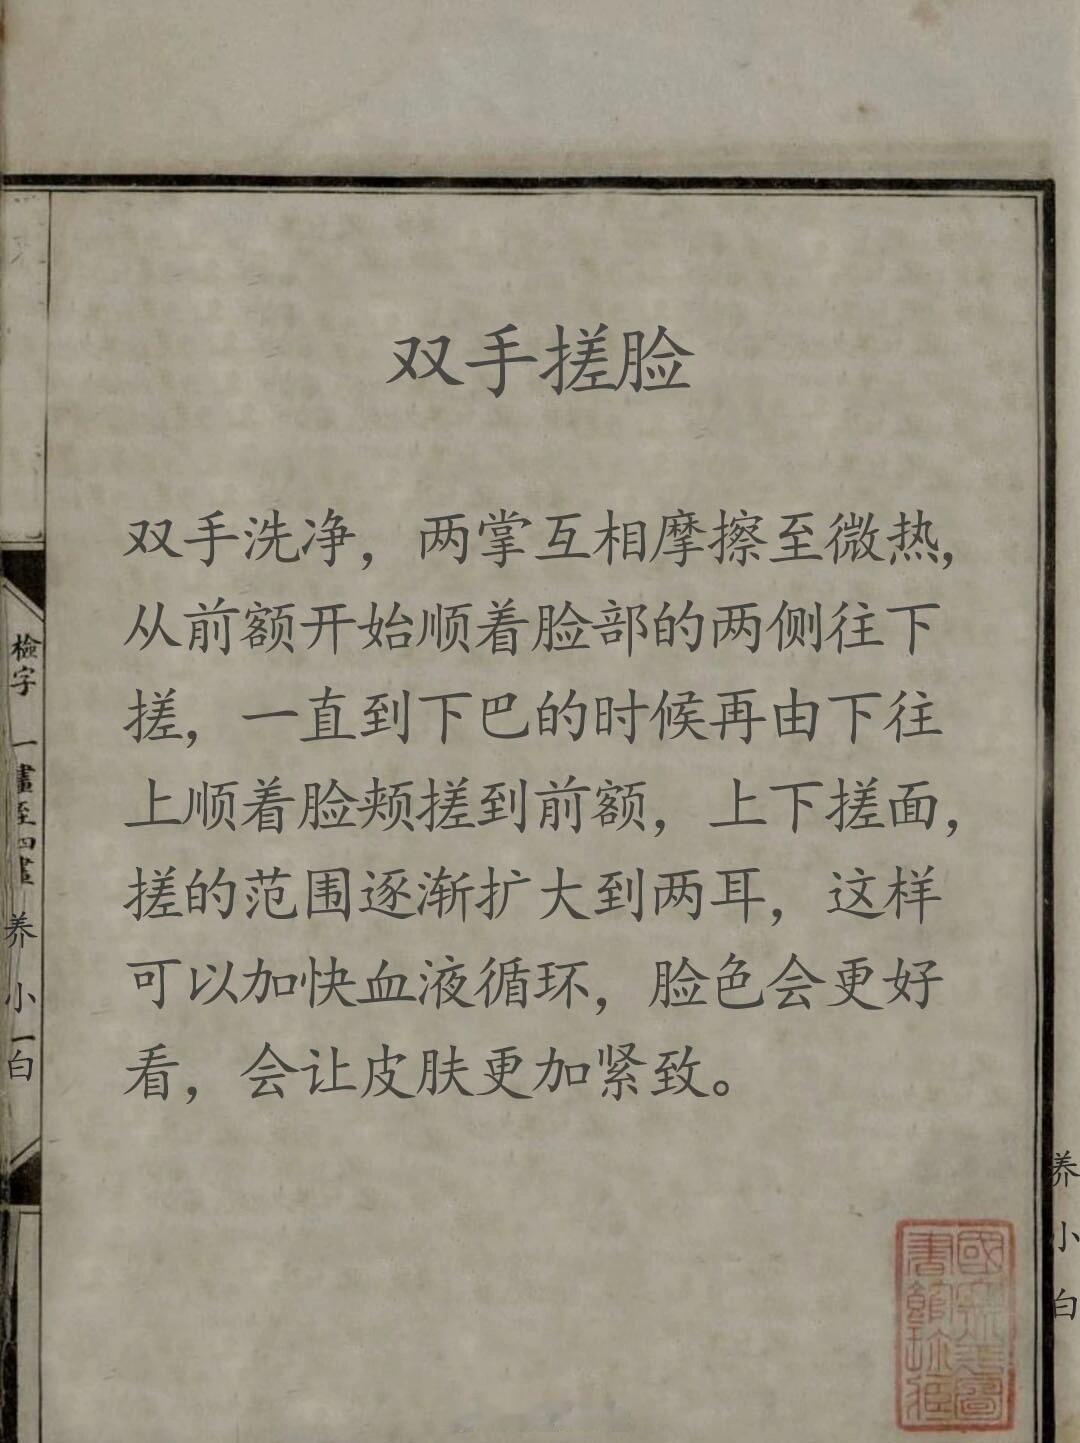 双手搓脸
双手洗净，两掌互相摩擦至微热，
从前额开始顺着脸部的两侧往下
搓，一直到下巴的时候再由下往
上顺着脸颊搓到前额，上下搓面，
搓的范围逐渐扩大到两耳，这样
可以加快血液循环，脸色会更好
看，会让皮肤更加紧致。
檢字 一畫至四畫
养小一白
养小白
國家圖
書館珍藏